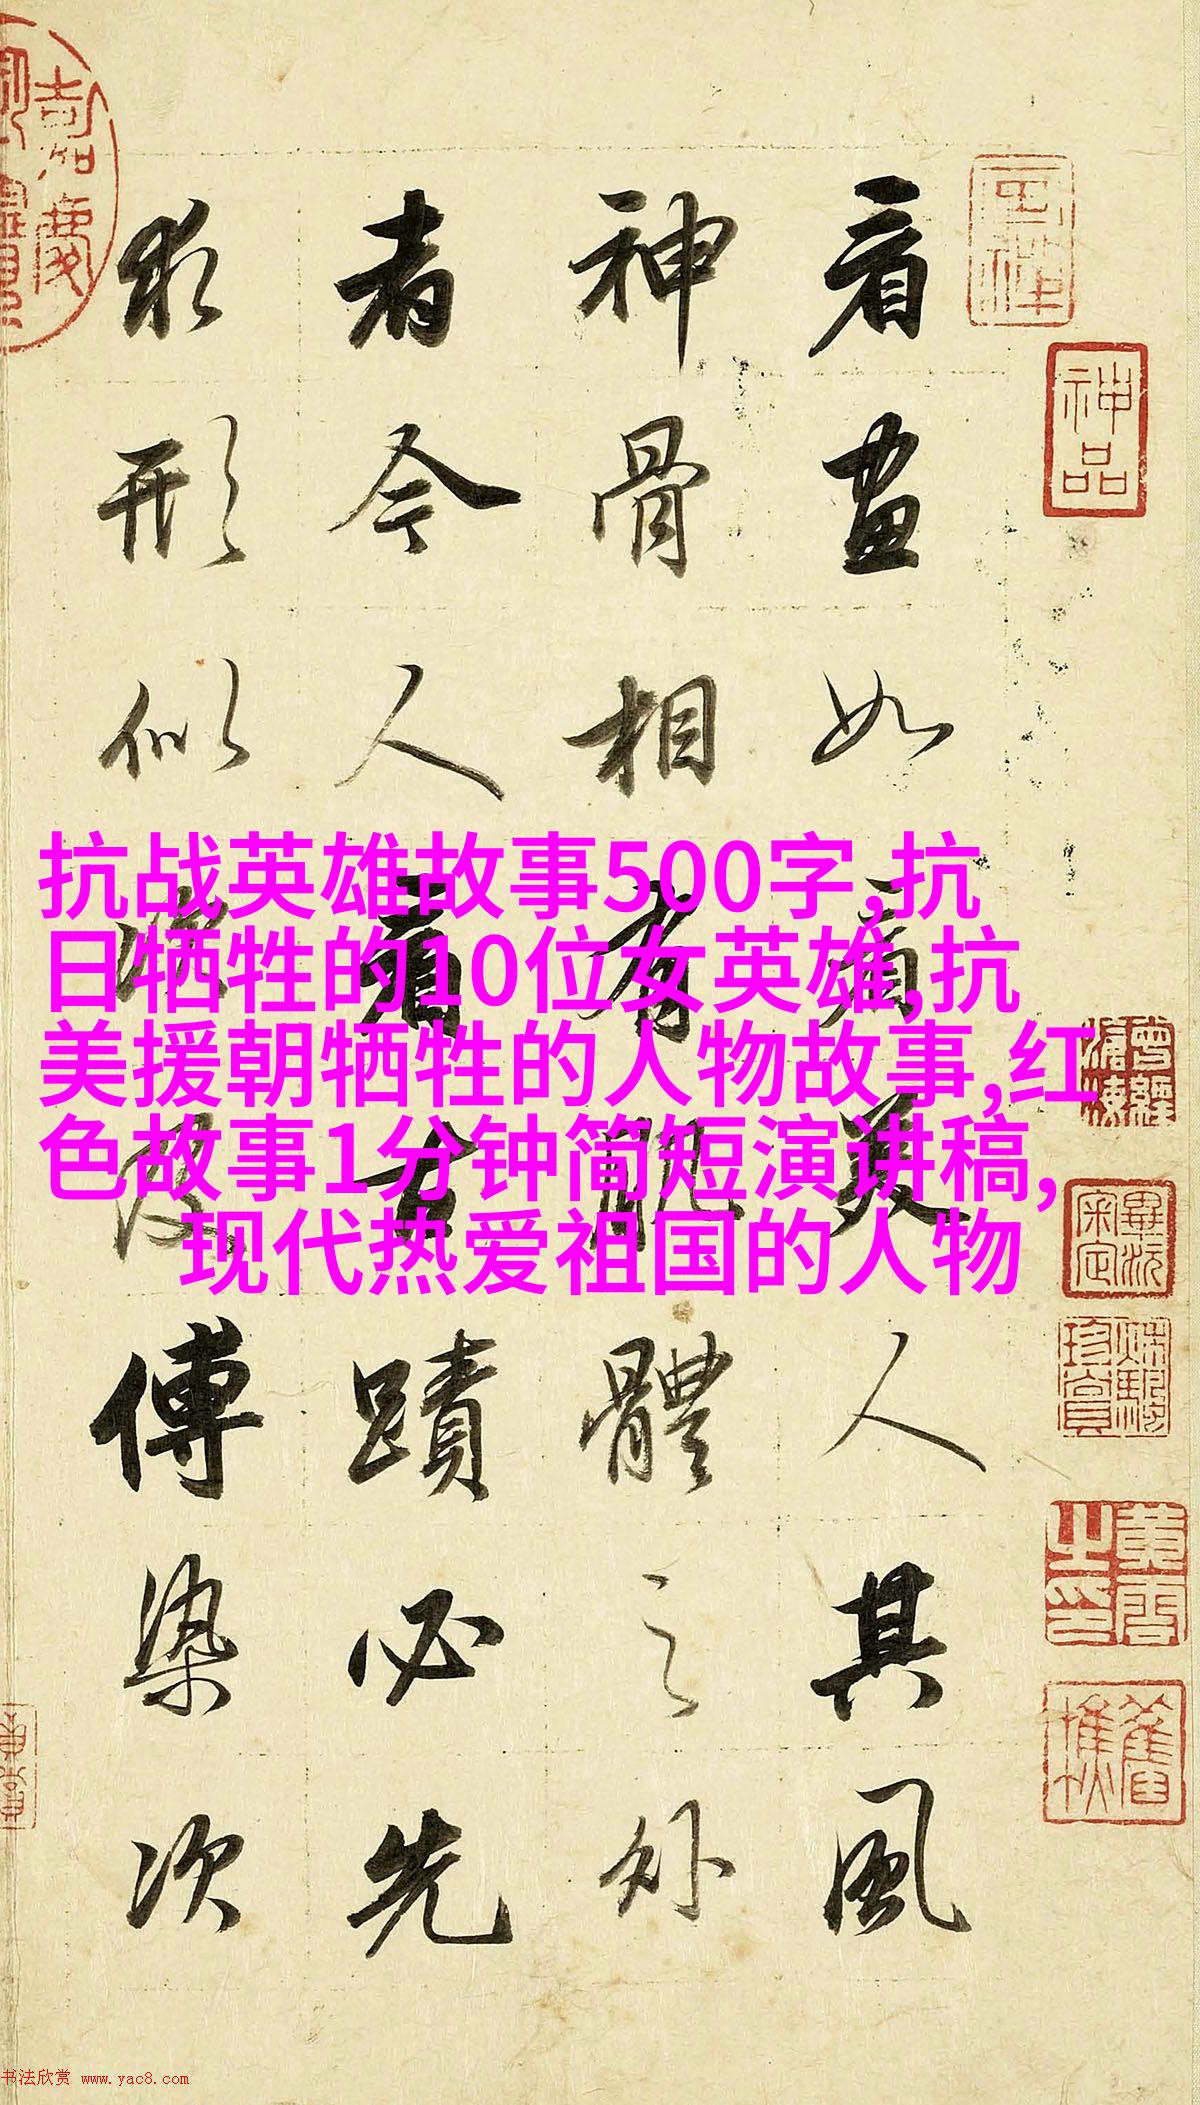 抗战英雄故事500字,抗
日牺牲的10位女英雄,抗
美援朝牺牲的人物故事,红
色故事1分钟简短演讲稿,
现代热爱祖国的人物
神品
看畫如看美人其風
神骨相有肌體之外
者今人看古蹟必先
求形似次及傅染次
嘉慶
书法欣赏 www.yac8.com